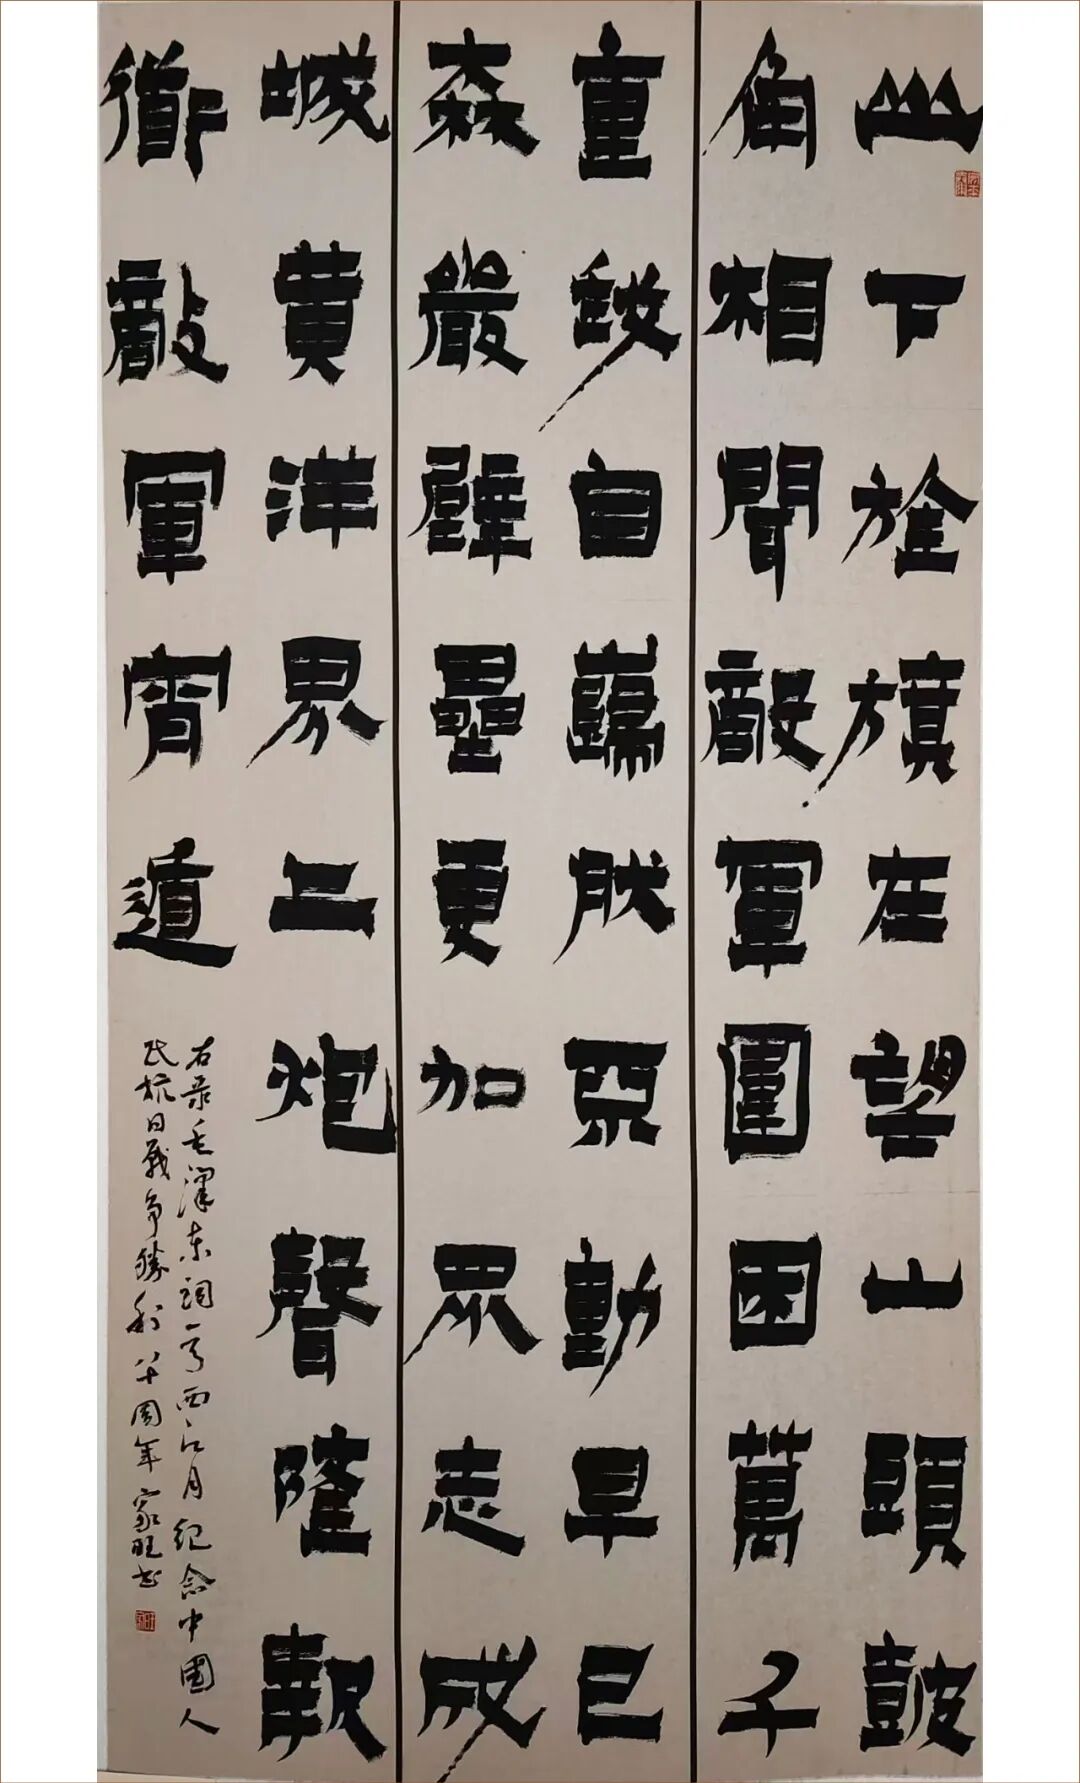 山下旌旗在望山頭鼓
角相聞敵軍圍困萬千
重我自巋然不動早已
森嚴壁壘更加眾志成
城黃洋界上炮聲隆報
衟敵軍宵遁
右录毛澤东詞一首西江月纪念中國人
民抗日戰争勝利八十周年家旺书